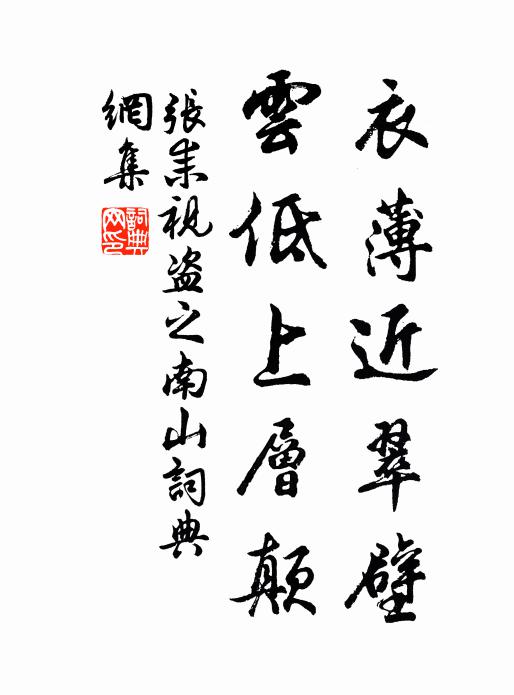 衣薄近翠壁
雲低上層顛
張耒視盗之南山詞典
網集
詞典网印